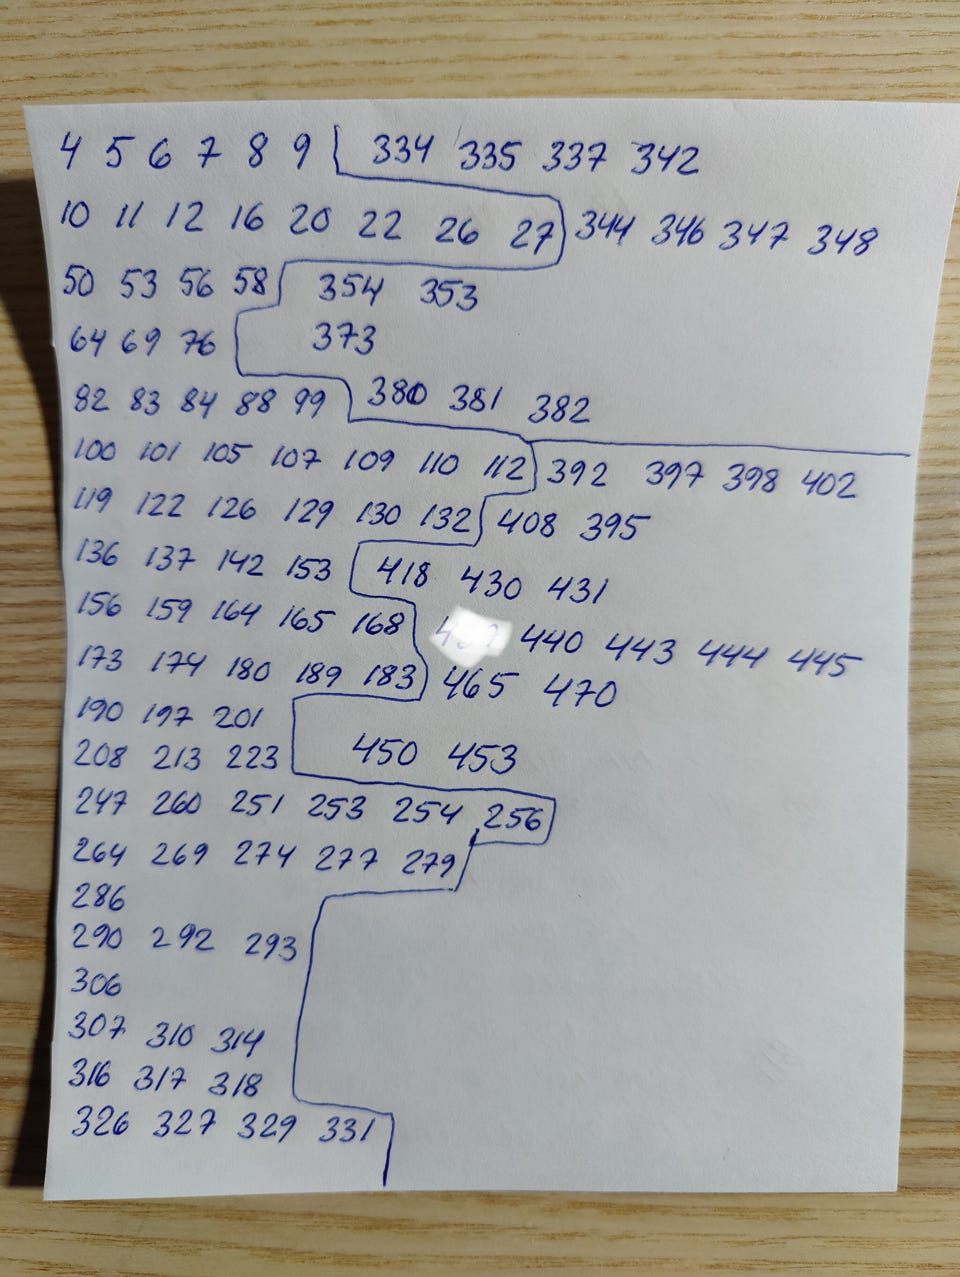 4 5 6 7 8 9
10 11 12 16 20 22 26 27
50 53 56 58
64 69 76
82 83 84 88 99
100 101 105 107 109 110 112
119 122 126 129 130 132
136 137 142 153
156 159 164 165 168
173 174 180 189 183
190 197 201
208 213 223
247 260 251 253 254 256
264 269 274 277 279
286
290 292 293
306
307 310 314
316 317 318
326 327 329 331
334 335 337 342
344 346 347 348
354 353
373
380 381 382
392 397 398 402
408 395
418 430 431
440 443 444 445
465 470
450 453